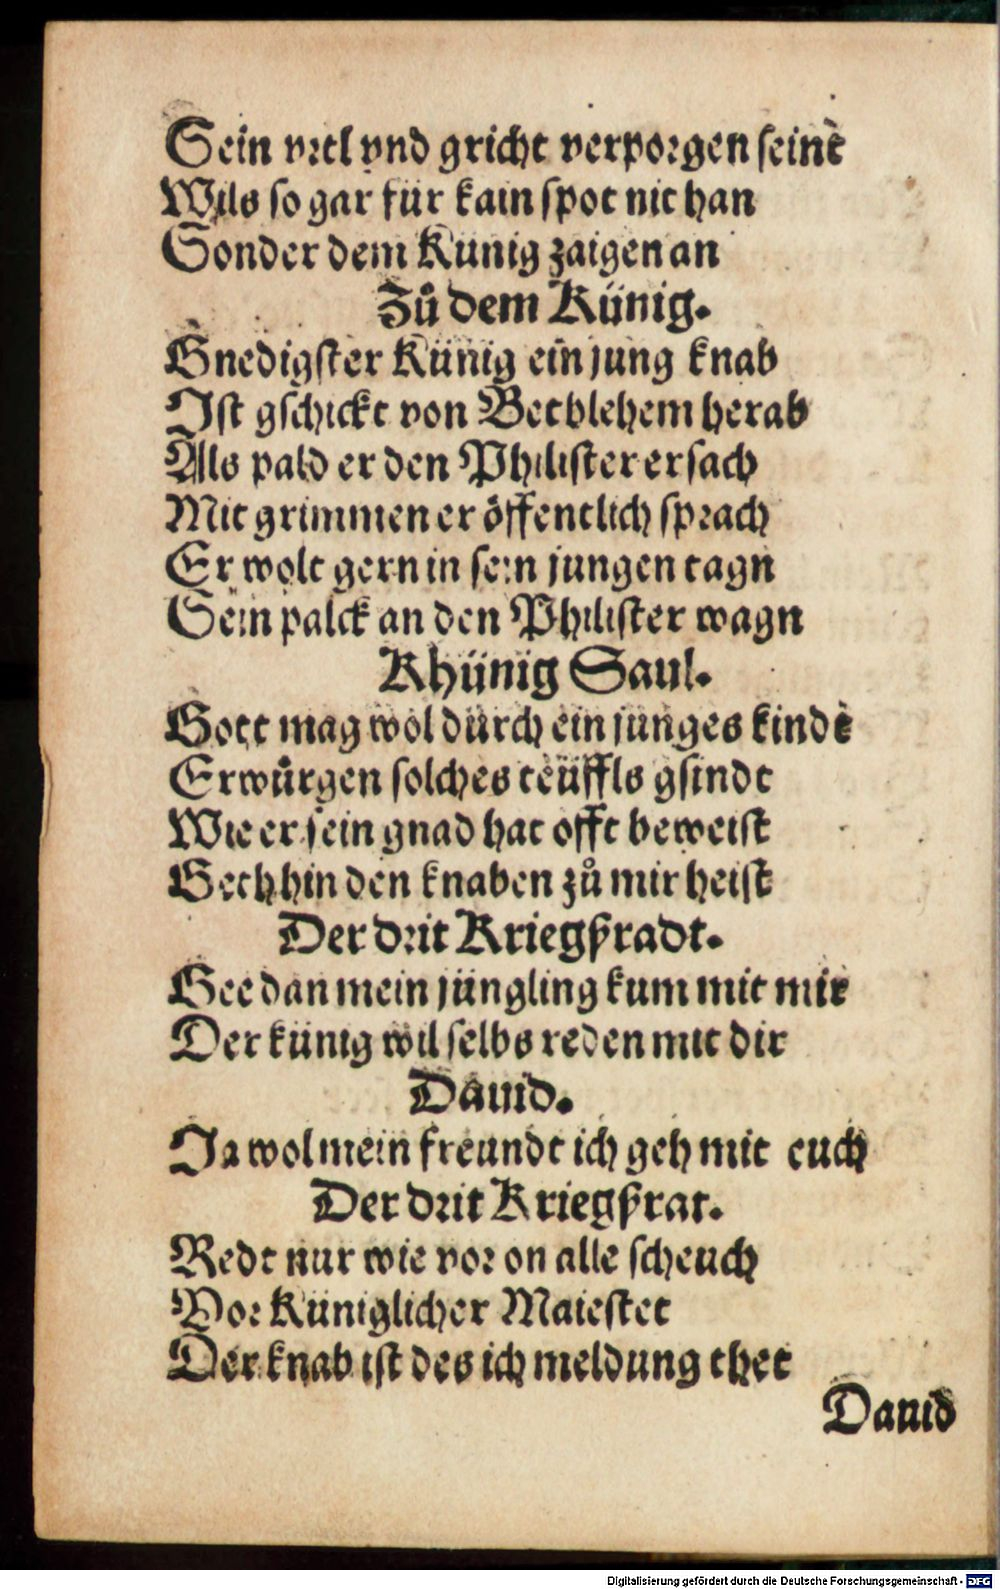 Sein vrtl vnd gricht verporgen seint
Wils so gar für kain spot nit han
Sonder dem Künig zaigen an
Zů dem Künig.
Gnedigster Künig ein jung knab
Ist gschickt von Bethlehem herab
Als pald er den Philister ersach
Mit grimmen er öffentlich sprach
Er wolt gern in sein jungen tagn
Sein palck an den Philister wagn
Khünig Saul.
Gott mag wol durch ein junges kindt
Erwürgen solches teüffls gsindt
Wie er sein gnad hat offt beweist
Geth hin den knaben zů mir heist
Der drit Kriegßradt.
Gee dan mein jüngling kum mit mir
Der künig wil selbs reden mit dir
Dauid.
Ja wol mein freundt ich geh mit euch
Der drit Kriegßrat.
Redt nur wie vor on alle scheuch
Vor Küniglicher Maiestet
Der knab ist des ich meldung thet
Dauid
Digitalisierung gefördert durch die Deutsche Forschungsgemeinschaft - DFG